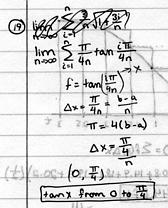 19
lim n→∞ n Σ i=1 π/4n tan iπ/4n
f = tan(iπ/4n) → x
Δx = π/4n = b-a/n
π = 4(b-a)
Δx = π/4 / n
(0, π/4)
tan x from 0 to π/4